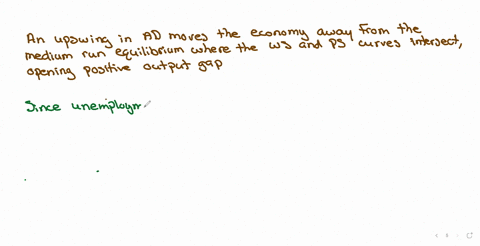 An upswing in AD moves the economy away from the
medium run equilibrium where the WS and PS curves intersect,
opening positive output gap
Since unemploym